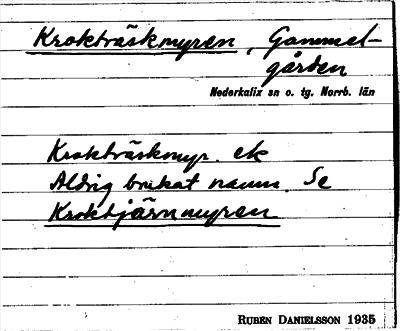 Krokträskmyren, Gammel-
gården
Nederkalix sn o. tg. Norrb. län
Krokträskmyr. ek
Aldrig brukat namn. Se
Kroktjärnmyren
RUBEN DANIELSSON 1935